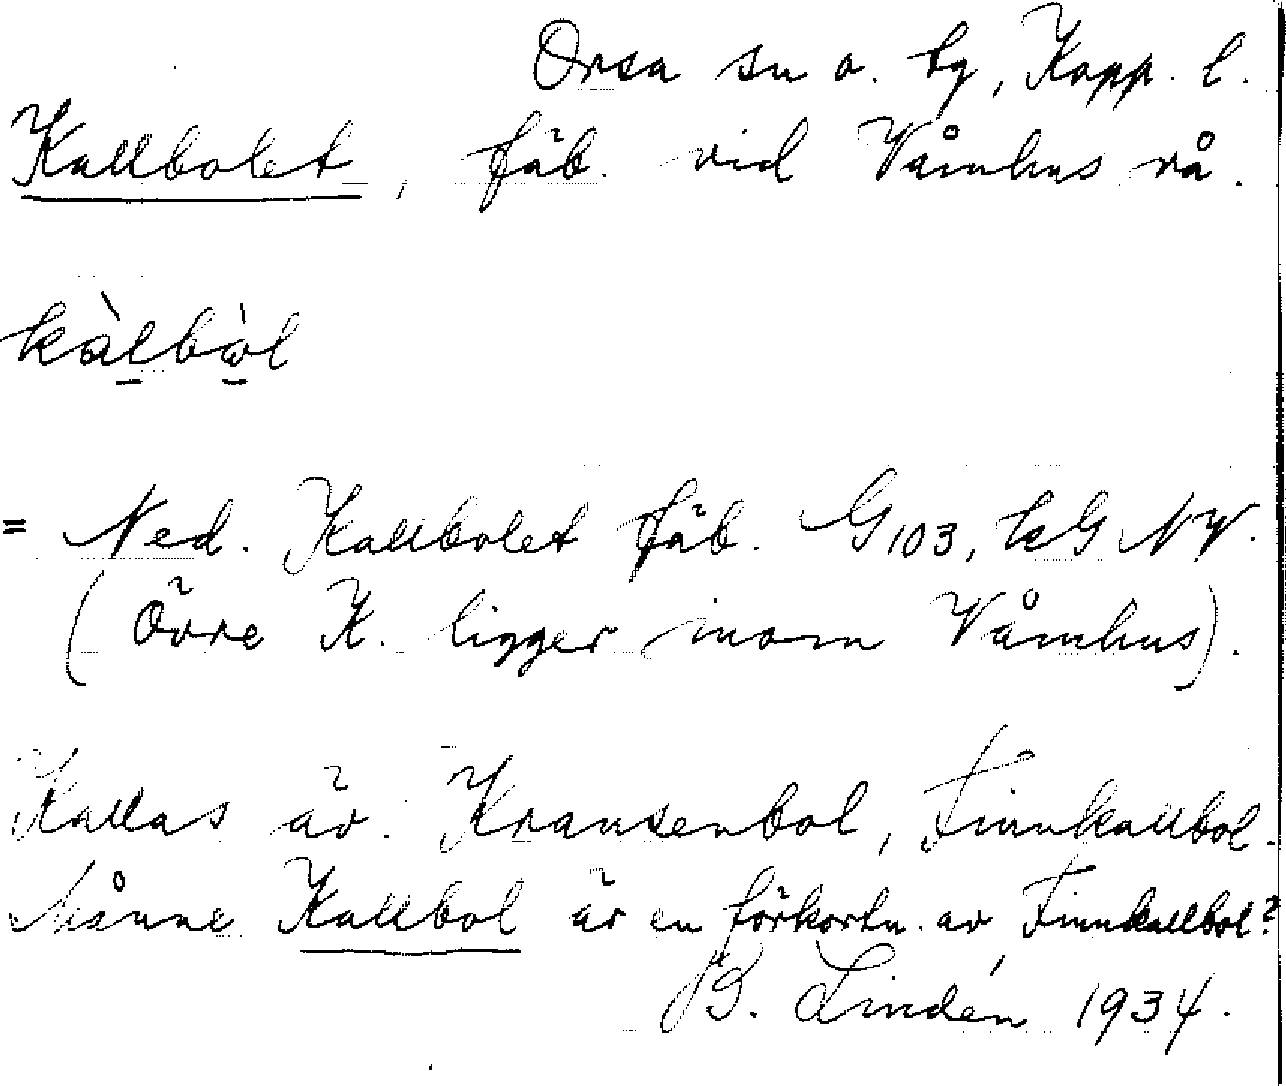 Orsa sn o. tg, Kopp. l.
Kallbolet, fäb. vid Våmhus rå.
kàlbòl
= Ned. Kallbolet fäb. G103, kG NV.
(Övre K. ligger inom Våmhus).
Kallas äv. Kransenbol, Finnkallbol.
Månne Kallbol är en förkortn. av Finnkallbol?
B. Lindén 1934.